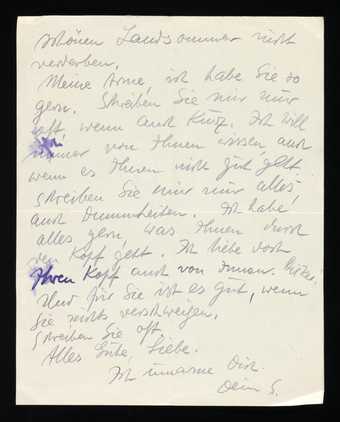 schönen Landsommer nicht
verderben.
Meine Arme, ich habe Sie so
gern. Schreiben Sie mir nur
oft, wenn auch kurz. Ich will
immer von Ihnen wissen auch
wenn es Ihnen nicht gut geht.
Schreiben Sie mir nur alles,
auch Dummheiten. Ich habe
alles gern was Ihnen durch
den Kopf geht. Ich liebe doch
Ihren Kopf auch von innen.
Und für Sie ist es gut, wenn
Sie nichts verschweigen.
Schreiben Sie oft.
Alles Gute, Liebe.
Ich umarme Dich.
Dein S.